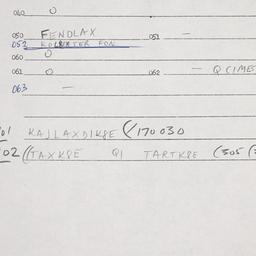 040 O
050 FENDLAX 051 —
052
060 O
061 O 062 — QCIME
063 —
01 KAJLAXDIKPE (/170030
02 ((TAXKPE QI TARTKPE (305